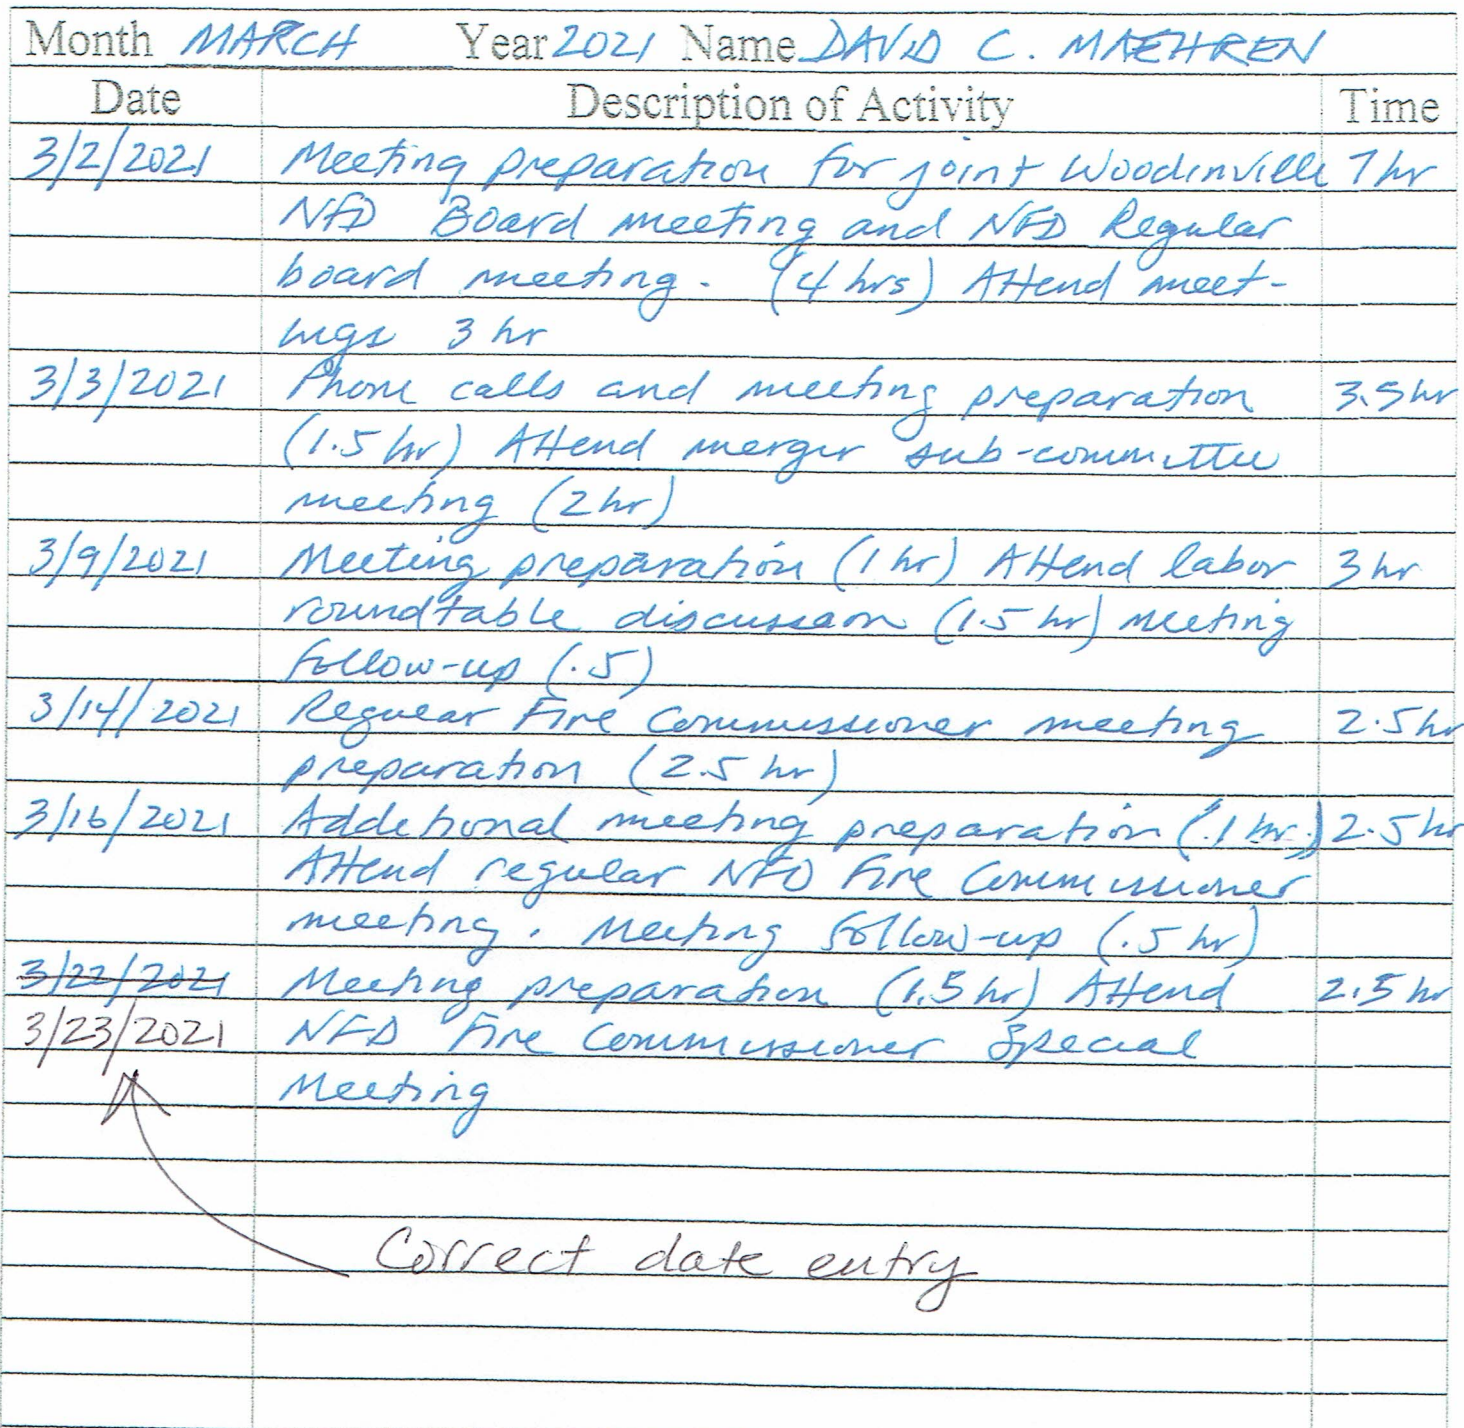 Month MARCH Year 2021 Name DAVID C. MAEHREN
Date Description of Activity Time
3/2/2021 Meeting preparation for joint Woodinville 7 hr
NFD Board meeting and NFD Regular
board meeting. (4 hrs) Attend meet-
ings 3 hr
3/3/2021 Phone calls and meeting preparation 3.5 hr
(1.5 hr) Attend merger sub-committee
meeting (2 hr)
3/9/2021 Meeting preparation (1 hr) Attend labor 3 hr
roundtable discussion (1.5 hr) Meeting
follow-up (.5)
3/14/2021 Regular Fire Commissioner meeting 2.5 hr
preparation (2.5 hr)
3/16/2021 Additional meeting preparation (.1 hr.) 2.5 hr
Attend regular NFD Fire Commissioner
meeting. Meeting follow-up (.5 hr)
3/22/2021 Meeting preparation (1.5 hr) Attend 2.5 hr
3/23/2021 NFD Fire Commissioner Special
Meeting
Correct date entry